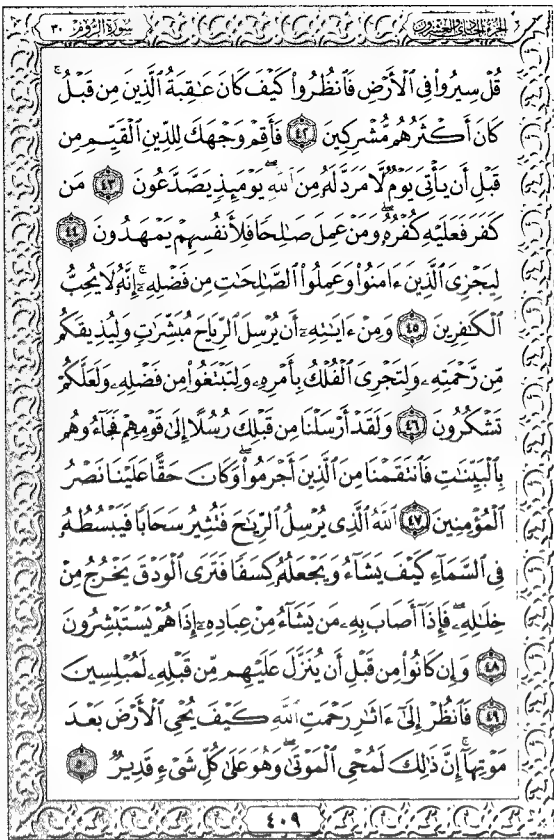 الجزء الحادي والعشرون سورة الروم ٣٠
قُلْ سِيرُوا۟ فِى ٱلْأَرْضِ فَٱنظُرُوا۟ كَيْفَ كَانَ عَـٰقِبَةُ ٱلَّذِينَ مِن قَبْلُ ۚ
كَانَ أَكْثَرُهُم مُّشْرِكِينَ ٤٢ فَأَقِمْ وَجْهَكَ لِلدِّينِ ٱلْقَيِّمِ مِن
قَبْلِ أَن يَأْتِىَ يَوْمٌ لَّا مَرَدَّ لَهُۥ مِنَ ٱللَّهِ ۖ يَوْمَئِذٍ يَصَّدَّعُونَ ٤٣ مَن
كَفَرَ فَعَلَيْهِ كُفْرُهُۥ ۖ وَمَنْ عَمِلَ صَـٰلِحًا فَلِأَنفُسِهِمْ يَمْهَدُونَ ٤٤
لِيَجْزِىَ ٱلَّذِينَ ءَامَنُوا۟ وَعَمِلُوا۟ ٱلصَّـٰلِحَـٰتِ مِن فَضْلِهِۦٓ ۚ إِنَّهُۥ لَا يُحِبُّ
ٱلْكَـٰفِرِينَ ٤٥ وَمِنْ ءَايَـٰتِهِۦٓ أَن يُرْسِلَ ٱلرِّيَاحَ مُبَشِّرَٰتٍ وَلِيُذِيقَكُم
مِّن رَّحْمَتِهِۦ وَلِتَجْرِىَ ٱلْفُلْكُ بِأَمْرِهِۦ وَلِتَبْتَغُوا۟ مِن فَضْلِهِۦ وَلَعَلَّكُمْ
تَشْكُرُونَ ٤٦ وَلَقَدْ أَرْسَلْنَا مِن قَبْلِكَ رُسُلًا إِلَىٰ قَوْمِهِمْ فَجَآءُوهُم
بِٱلْبَيِّنَـٰتِ فَٱنتَقَمْنَا مِنَ ٱلَّذِينَ أَجْرَمُوا۟ ۖ وَكَانَ حَقًّا عَلَيْنَا نَصْرُ
ٱلْمُؤْمِنِينَ ٤٧ ٱللَّهُ ٱلَّذِى يُرْسِلُ ٱلرِّيَـٰحَ فَتُثِيرُ سَحَابًا فَيَبْسُطُهُۥ
فِى ٱلسَّمَآءِ كَيْفَ يَشَآءُ وَيَجْعَلُهُۥ كِسَفًا فَتَرَى ٱلْوَدْقَ يَخْرُجُ مِنْ
خِلَـٰلِهِۦ ۖ فَإِذَآ أَصَابَ بِهِۦ مَن يَشَآءُ مِنْ عِبَادِهِۦٓ إِذَا هُمْ يَسْتَبْشِرُونَ
٤٨ وَإِن كَانُوا۟ مِن قَبْلِ أَن يُنَزَّلَ عَلَيْهِم مِّن قَبْلِهِۦ لَمُبْلِسِينَ
٤٩ فَٱنظُرْ إِلَىٰٓ ءَاثَـٰرِ رَحْمَتِ ٱللَّهِ كَيْفَ يُحْىِ ٱلْأَرْضَ بَعْدَ
مَوْتِهَآ ۚ إِنَّ ذَٰلِكَ لَمُحْىِ ٱلْمَوْتَىٰ ۖ وَهُوَ عَلَىٰ كُلِّ شَىْءٍ قَدِيرٌ ٥٠
٤٠٩